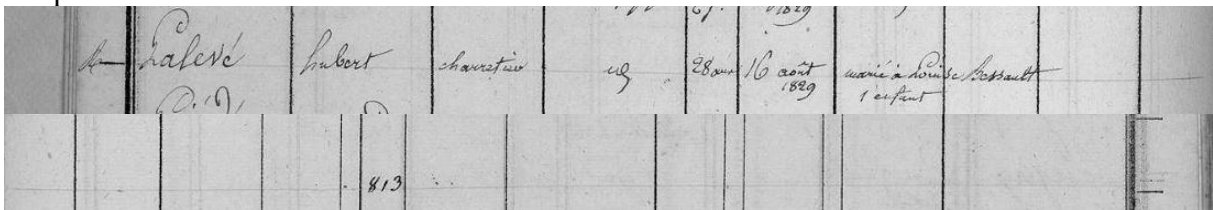 1829
Lalevé hubert charretier id 28 ans 16 août 1829 marié à Louise Bessault
1 enfant
813